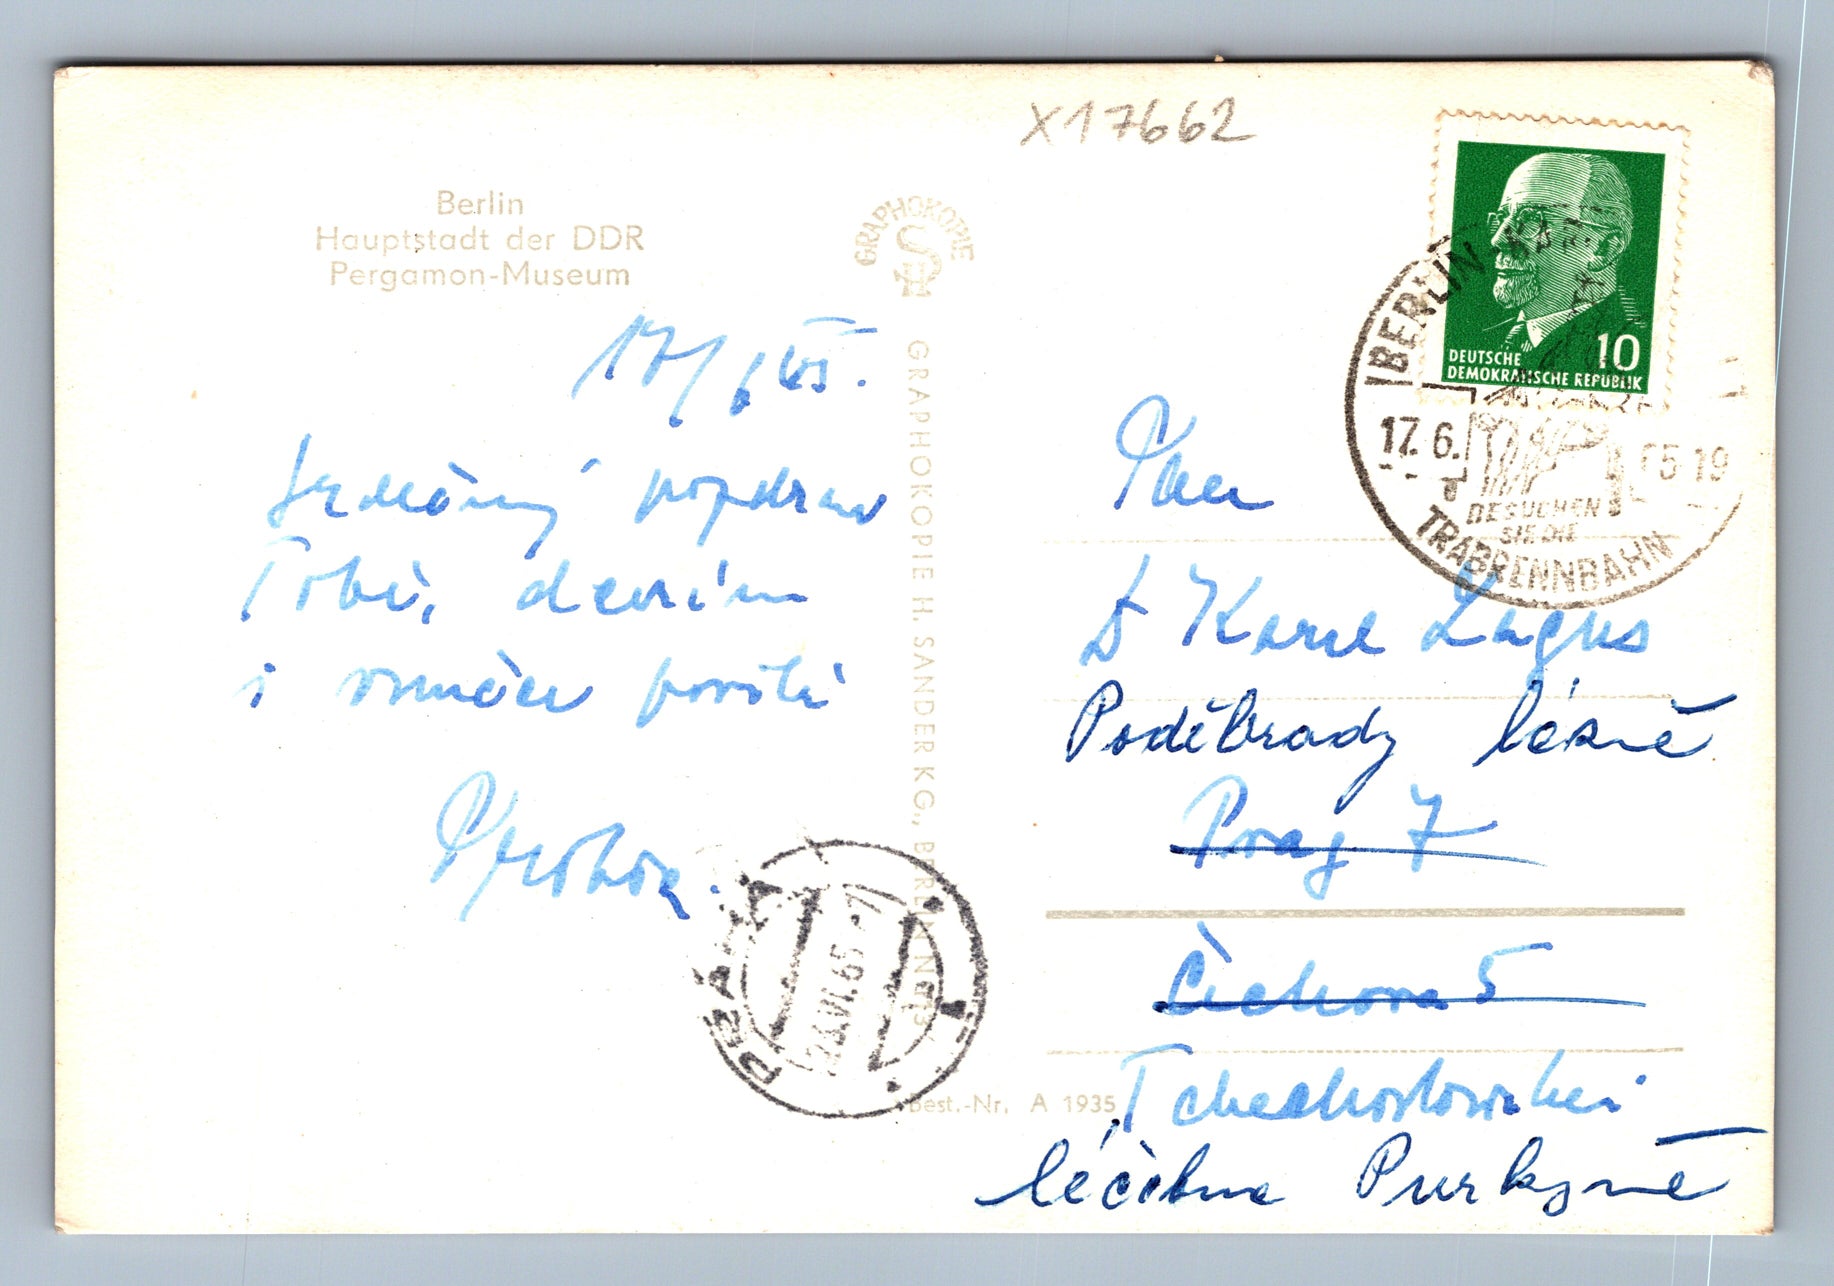 X17662
Berlin
Hauptstadt der DDR
Pergamon-Museum
GRAPHOKOPIE
GRAPHOKOPIE H. SANDER KG., BERLIN N 113
17/6 65.
Srdečný pozdrav
Tobě,
i
DEUTSCHE
DEMOKRATISCHE REPUBLIK
10
BERLIN
17.6. 65-19
BESUCHEN
SIE DIE
TRABRENNBAHN
Dr Karel Lagus
Poděbrady lázně
Prag 7
Čechova 5
Tschechoslowakei
léčebna Purkyně
PRAHA
VI.65-7
Best.-Nr. A 1935